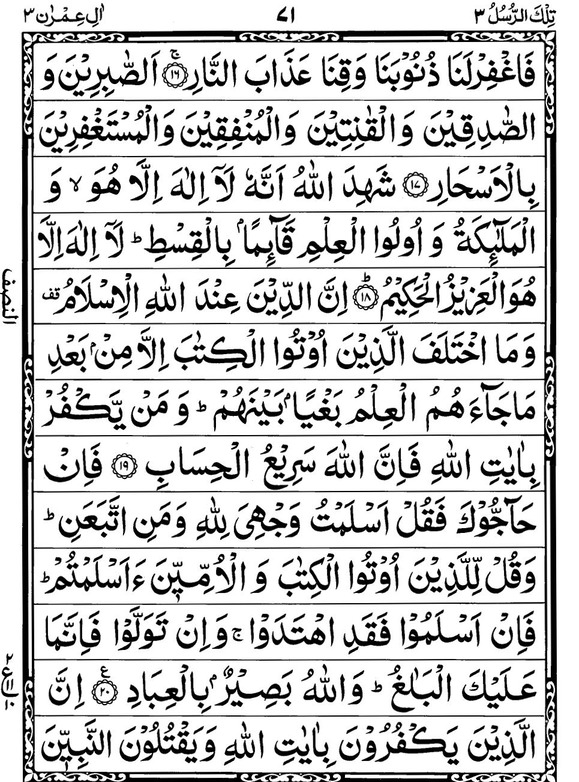 تِلۡكَ الرُّسُلُ ٣ ٧١ اٰلِ عِمۡرٰن ٣
فَاغۡفِرۡلَنَا ذُنُوۡبَنَا وَقِنَا عَذَابَ النَّارِ ۚ‏ ﴿۱۶﴾ اَلصّٰبِرِيۡنَ وَ
الصّٰدِقِيۡنَ وَالۡقٰنِتِيۡنَ وَالۡمُنۡفِقِيۡنَ وَالۡمُسۡتَغۡفِرِيۡنَ
بِالۡاَسۡحَارِ ﴿۱۷﴾ شَهِدَ اللّٰهُ اَنَّهٗ لَاۤ اِلٰهَ اِلَّا هُوَ ۙ وَ
الۡمَلٰٓئِكَةُ وَ اُولُوا الۡعِلۡمِ قَآئِمًاۢ بِالۡقِسۡطِ ؕ لَاۤ اِلٰهَ اِلَّا
هُوَ الۡعَزِيۡزُ الۡحَكِيۡمُ ؕ ﴿۱۸﴾ اِنَّ الدِّيۡنَ عِنۡدَ اللّٰهِ الۡاِسۡلَامُ قف
وَ مَا اخۡتَلَفَ الَّذِيۡنَ اُوۡتُوا الۡكِتٰبَ اِلَّا مِنۡۢ بَعۡدِ
مَا جَآءَ هُمُ الۡعِلۡمُ بَغۡيًاۢ بَيۡنَهُمۡ ؕ وَ مَنۡ يَّكۡفُرۡ
بِاٰيٰتِ اللّٰهِ فَاِنَّ اللّٰهَ سَرِيۡعُ الۡحِسَابِ ﴿۱۹﴾ فَاِنۡ
حَآجُّوۡكَ فَقُلۡ اَسۡلَمۡتُ وَجۡهِىَ لِلّٰهِ وَمَنِ اتَّبَعَنِ ؕ
وَقُلْ لِّلَّذِيۡنَ اُوۡتُوا الۡكِتٰبَ وَ الۡاُمِّيّٖنَ ءَاَسۡلَمۡتُمۡ ؕ
فَاِنۡ اَسۡلَمُوۡا فَقَدِ اهۡتَدَوْا ۚ وَ اِنۡ تَوَلَّوۡا فَاِنَّمَا
عَلَيۡكَ الۡبَلٰغُ ؕ وَاللّٰهُ بَصِيۡرٌۢ بِالۡعِبَادِ ﴿۲۰﴾ ع اِنَّ
الَّذِيۡنَ يَكۡفُرُوۡنَ بِاٰيٰتِ اللّٰهِ وَيَقۡتُلُوۡنَ النَّبِيّٖنَ
النصف